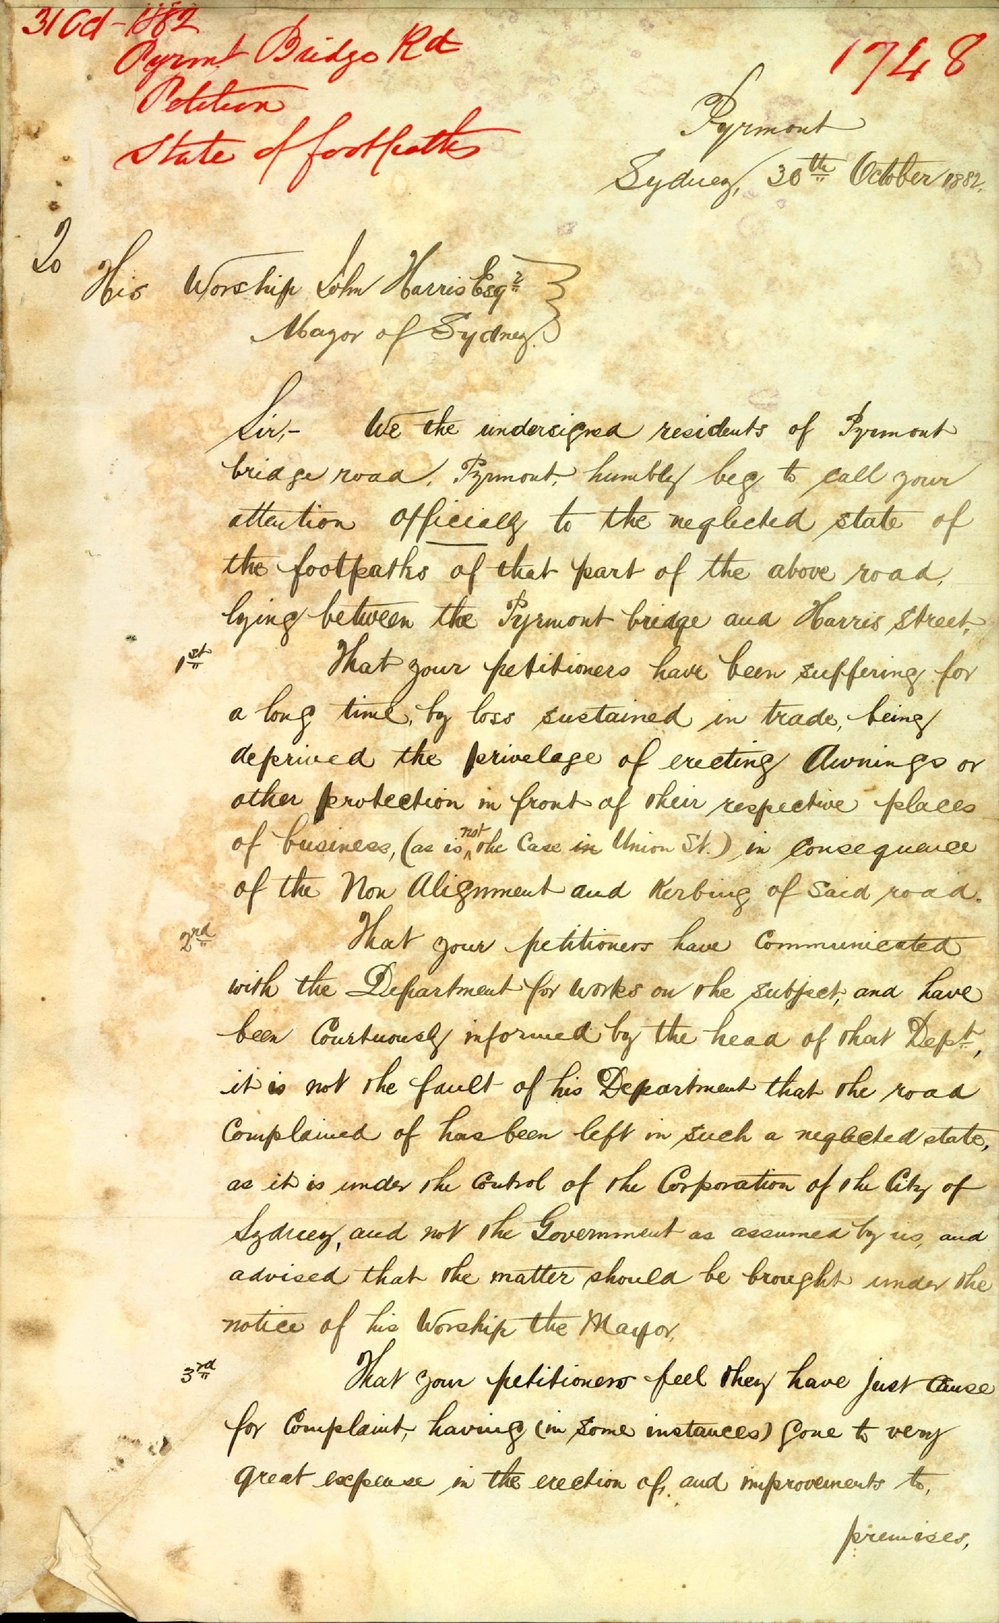 31 Oct - 1882
Pyrmt Bridge Rd
Petition
State of footpaths
1748
Pyrmont
Sydney, 30th October 1882.
To
His Worship John Harris Esqr
Mayor of Sydney.
Sir,- We the undersigned residents of Pyrmont
bridge road, Pyrmont, humbly beg to call your
attention officially to the neglected state of
the footpaths of that part of the above road,
lying between the Pyrmont bridge and Harris Street.
1st That your petitioners have been suffering for
a long time, by loss sustained in trade, being
deprived the privelage of erecting Awnings or
other protection in front of their respective places
of business, (as is not the Case in Union St.) in consequence
of the Non Alignment and Kerbing of said road.
2nd That your petitioners have Communicated
with the Department for Works on the subject, and have
been Courtuously informed by the head of that Dept,
it is not the fault of his Department that the road
Complained of has been left in such a neglected state,
as it is under the Control of the Corporation of the City of
Sydney, and not the Government as assumed by us, and
advised that the matter should be brought under the
notice of his Worship the Mayor.
3rd That your petitioners feel they have just Cause
for Complaint, having (in some instances) gone to very
great expense in the erection of, and improvements to,
premises,